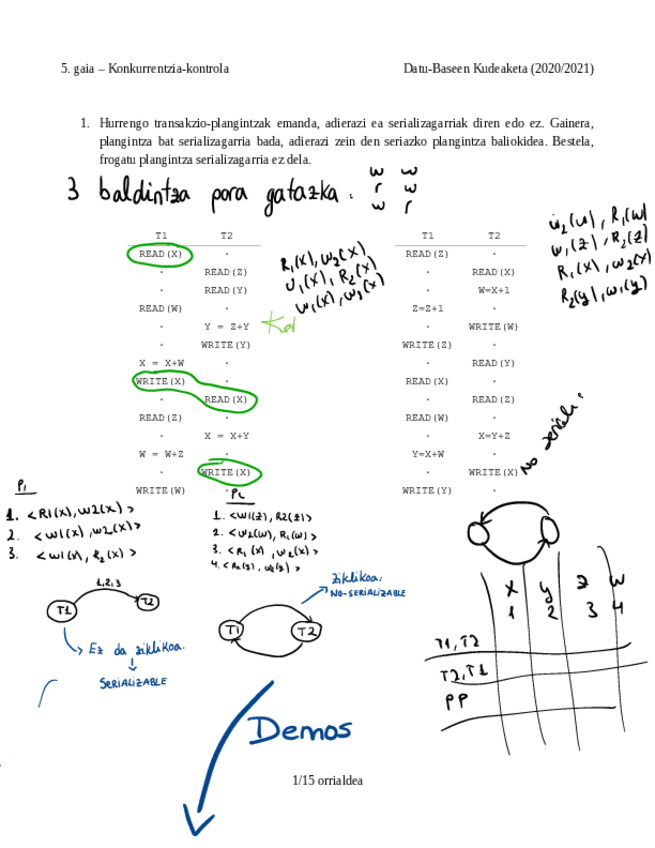 5. gaia – Konkurrentzia-kontrola Datu-Baseen Kudeaketa (2020/2021)
1. Hurrengo transakzio-plangintzak emanda, adierazi ea serializagarriak diren edo ez. Gainera,
plangintza bat serializagarria bada, adierazi zein den seriazko plangintza baliokidea. Bestela,
frogatu plangintza serializagarria ez dela.
3 baldintza para gatazka:
w w
r w
w r
T1 T2
READ(X) .
. READ(Z)
. READ(Y)
READ(W) .
. Y = Z+Y
. WRITE(Y)
X = X+W .
WRITE(X) .
. READ(X)
READ(Z) .
. X = X+Y
W = W+Z .
. WRITE(X)
WRITE(W) .
R1(X), W2(X)
W1(X), R2(X)
W1(X), W2(X)
T1 T2
READ(Z) .
. READ(X)
. W=X+1
Z=Z+1 .
. WRITE(W)
WRITE(Z) .
. READ(Y)
READ(X) .
. READ(Z)
READ(W) .
. X=Y+Z
Y=X+W .
. WRITE(X)
WRITE(Y) .
W2(W), R1(W)
W1(Z), R2(Z)
R1(X), W2(X)
R2(Y), W1(Y)
P1
1. <R1(X), W2(X)>
2. <W1(X), W2(X)>
3. <W1(X), R2(X)>
1. <W1(Z), R2(Z)>
2. <W2(W), R1(W)>
3. <R1(X), W2(X)>
1,2,3
T1 T2
Ez da ziklikoa.
SERIALIZABLE
T1 T2
ziklikoa:
NO-SERIALIZABLE
X Y Z W
1 2 3 4
T1,T2
T2,T1
PP
Demos
1/15 orrialdea